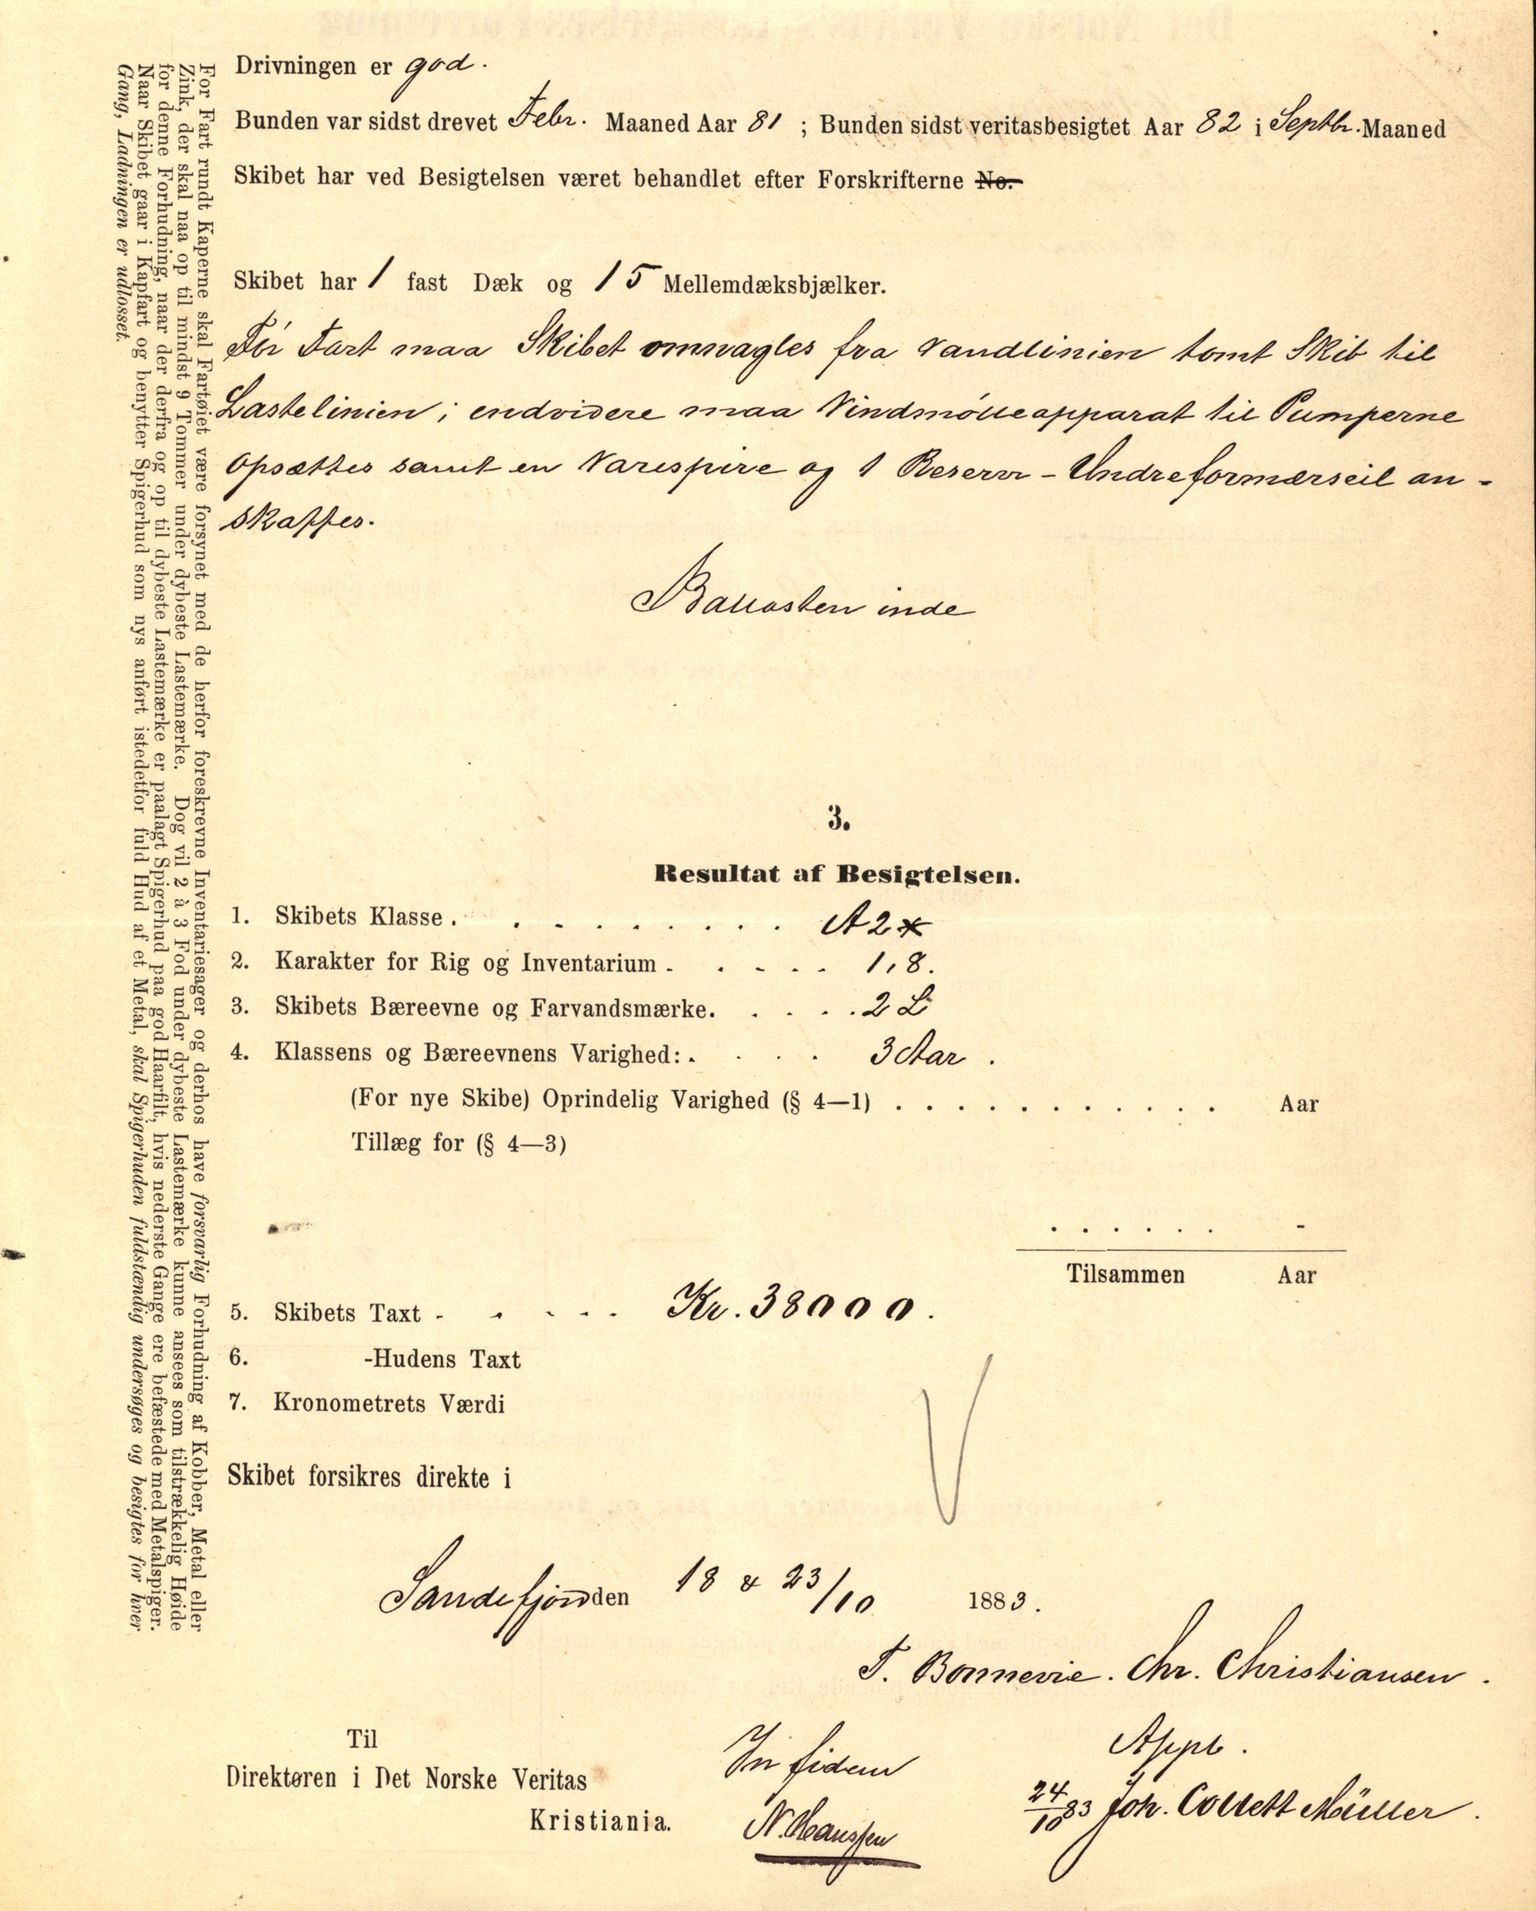 Drivningen er god.
Bunden var sidst drevet Febr. Maaned Aar 81 ; Bunden sidst veritasbesigtet Aar 82 i Septbr. Maaned
Skibet har ved Besigtelsen været behandlet efter Forskrifterne No.
Skibet har 1 fast Dæk og 15 Mellemdæksbjælker.
Før Fart maa Skibet omnagles fra Vandlinien tomt Skib til
Lastelinien; endvidere maa Vindmølleapparat til Pumperne
opsættes samt en Varespire og 1 Reserve-Undreformærseil an-
skaffes.
Ballasten inde
3.
Resultat af Besigtelsen.
1. Skibets Klasse . . . . . . . . . A2*
2. Karakter for Rig og Inventarium . . . . . 1,8.
3. Skibets Bæreevne og Farvandsmærke. . . . . 2 L
4. Klassens og Bæreevnens Varighed: . . . . 3 Aar .
(For nye Skibe) Oprindelig Varighed (§ 4—1) . . . . . . . . . . . Aar
Tillæg for (§ 4—3)
. . . . . . -
Tilsammen Aar
5. Skibets Taxt - . - - - Kr. 38000.
6. -Hudens Taxt
7. Kronometrets Værdi
Skibet forsikres direkte i
Sandefjord den 18 & 23/10 1883.
F. Bonnevie. Chr. Christiansen.
Til
Direktøren i Det Norske Veritas
Kristiania.
In fidem
N. Hanssen
Appb.
24/10 83 Joh. Collett Müller.
For Fart rundt Kaperne skal Fartøiet være forsynet med de herfor foreskrevne Inventariesager og derhos have forsvarlig Forhudning af Kobber, Metal eller
Zink, der skal naa op til mindst 9 Tommer under dybeste Lastemærke. Dog vil 2 à 3 Fod under dybeste Lastemærke kunne ansees som tilstrækkelig Høide
for denne Forhudning, naar der derfra og op til dybeste Lastemærke er paalagt Spigerhud paa god Haarfilt, hvis nederste Gange ere befæstede med Metalspiger.
Naar Skibet gaar i Kapfart og benytter Spigerhud som nys anført istedetfor fuld Hud af et Metal, skal Spigerhuden fuldstændig undersøges og besigtes for hver
Gang, Ladningen er udlosset.